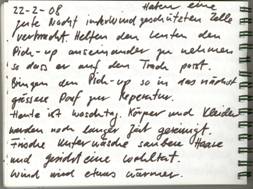 22-2-08 Haben eine
gute Nacht in der Zelle
verbracht. Helfen den Leuten den
Pick-up auseinander zu nehmen
so dass er auf den Truck passt.
Bringen den Pick-up so in das nächst
grössere Dorf zur Reperatur.
Heute ist waschtag. Körper und Kleider
werden nach langer Zeit gereinigt.
Frische Unterwäsche saubere Haare
und Gesicht eine wohltat.
Wind wird etwas wärmer.